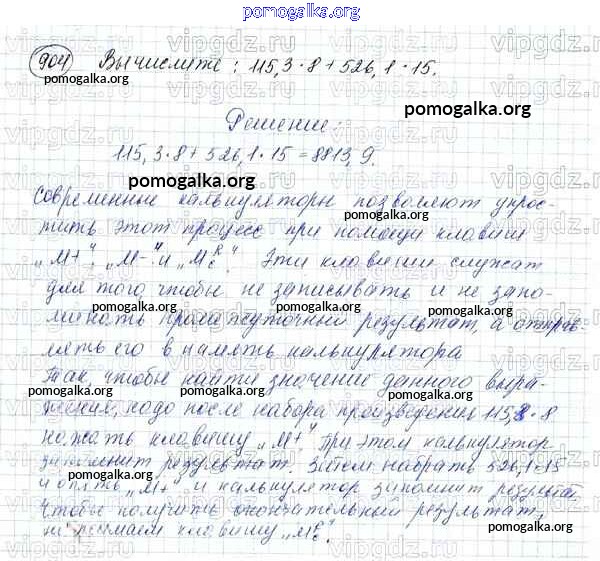 pomogalka.org
904 Вычислите: 115,3·8+526,1·15.
pomogalka.org
pomogalka.org
Решение:
115,3·8+526,1·15=8813,9.
pomogalka.org
современные калькуляторы позволяют упрос-
тить этот процесс при помощи клавиш
pomogalka.org
„М+“, „М-“ и „М R C“. Эти клавиши служат
для того чтобы не записывать и не запо-
минать промежуточный результат, а отправ-
лять его в память калькулятора
pomogalka.org
Так, чтобы найти значение данного выра-
жения, надо после набора произведения 115,3·8
pomogalka.org
нажать клавишу „М+“. При этом калькулятор
запомнит результат. Затем набрать 526,1·15
pomogalka.org
и опять „М+“ и калькулятор запомнит результат.
Чтобы получить окончательный результат,
pomogalka.org
нажимаем клавишу „М R C“.
pomogalka.org
vipgdz.ru